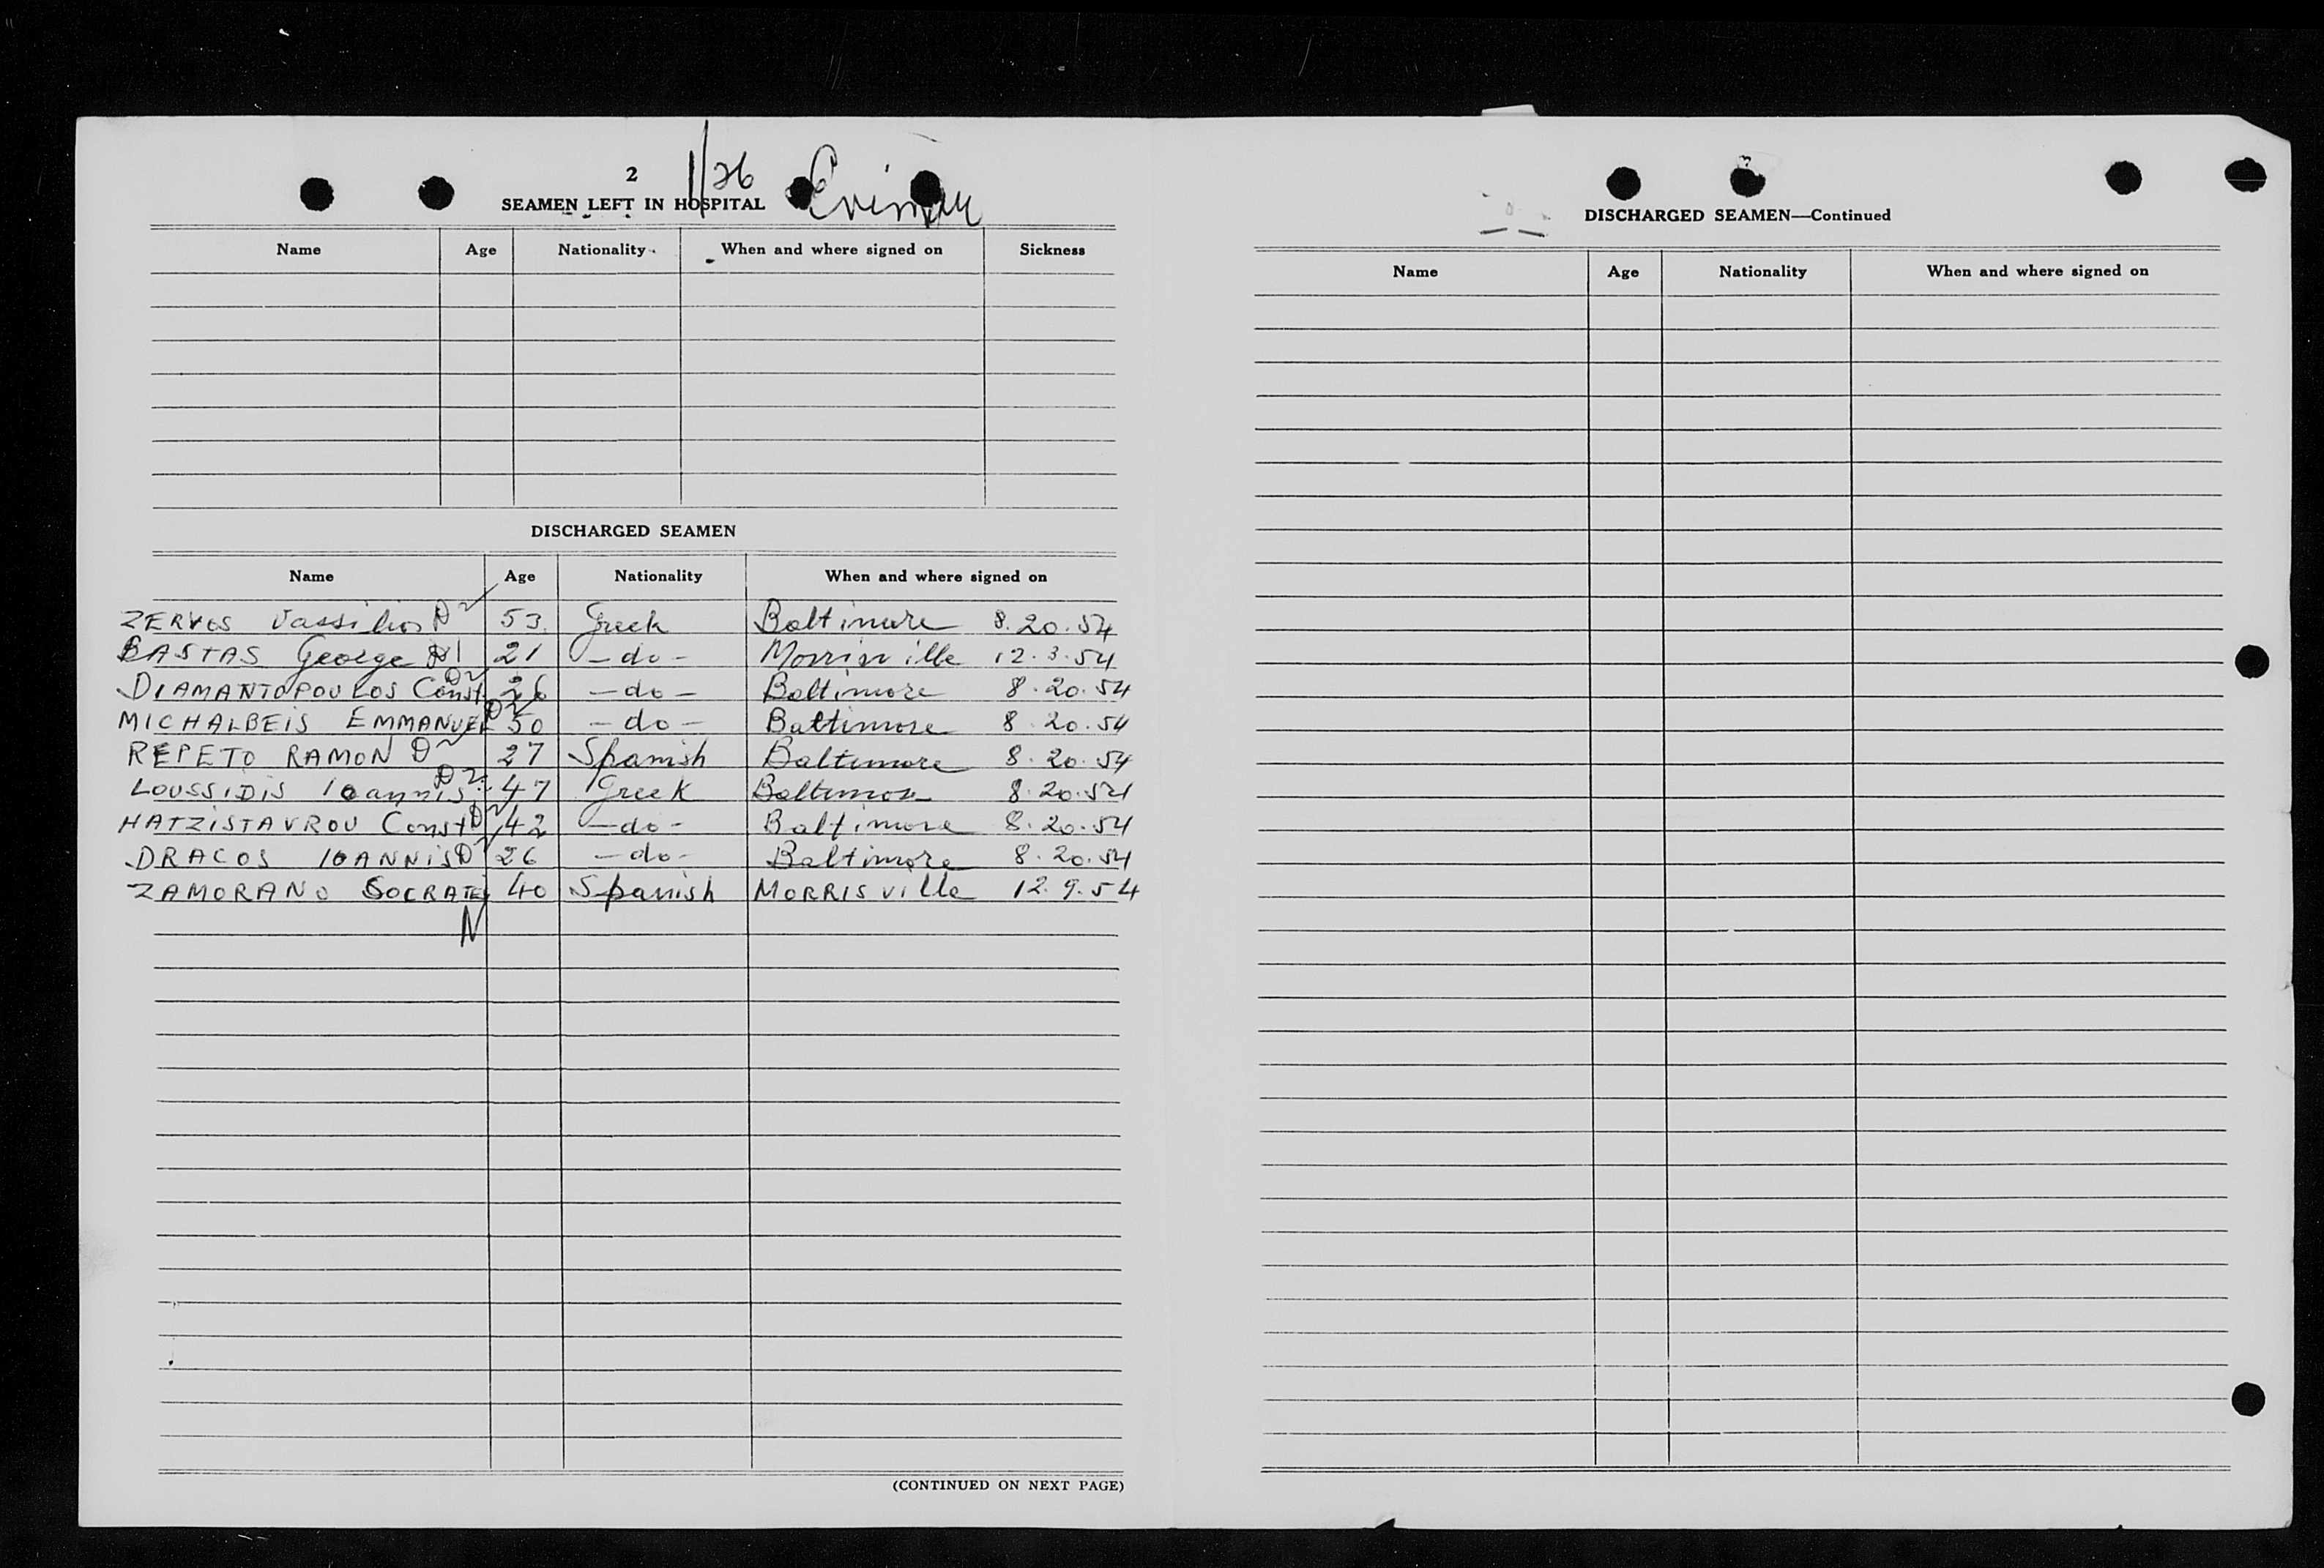 2
1/26
SEAMEN LEFT IN HOSPITAL
Name Age Nationality When and where signed on Sickness
DISCHARGED SEAMEN
Name Age Nationality When and where signed on
ZERVOS Vassilios D2 53 Greek Baltimore 8.20.54
BASTAS George 21 -do- Morrisville 12.3.54
DIAMANTOPOULOS Const. D2 26 -do- Baltimore 8.20.54
MICHALBEIS EMMANUEL D2 50 -do- Baltimore 8.20.54
REPETO RAMON D2 27 Spanish Baltimore 8.20.54
LOUSSIDIS Ioannis D2 47 Greek Baltimore 8.20.54
HATZISTAVROU Const D2 42 -do- Baltimore 8.20.54
DRACOS IOANNIS D2 26 -do- Baltimore 8.20.54
ZAMORANO SOCRATES 40 Spanish MORRISville 12.9.54
N
(CONTINUED ON NEXT PAGE)
3
DISCHARGED SEAMEN—Continued
Name Age Nationality When and where signed on